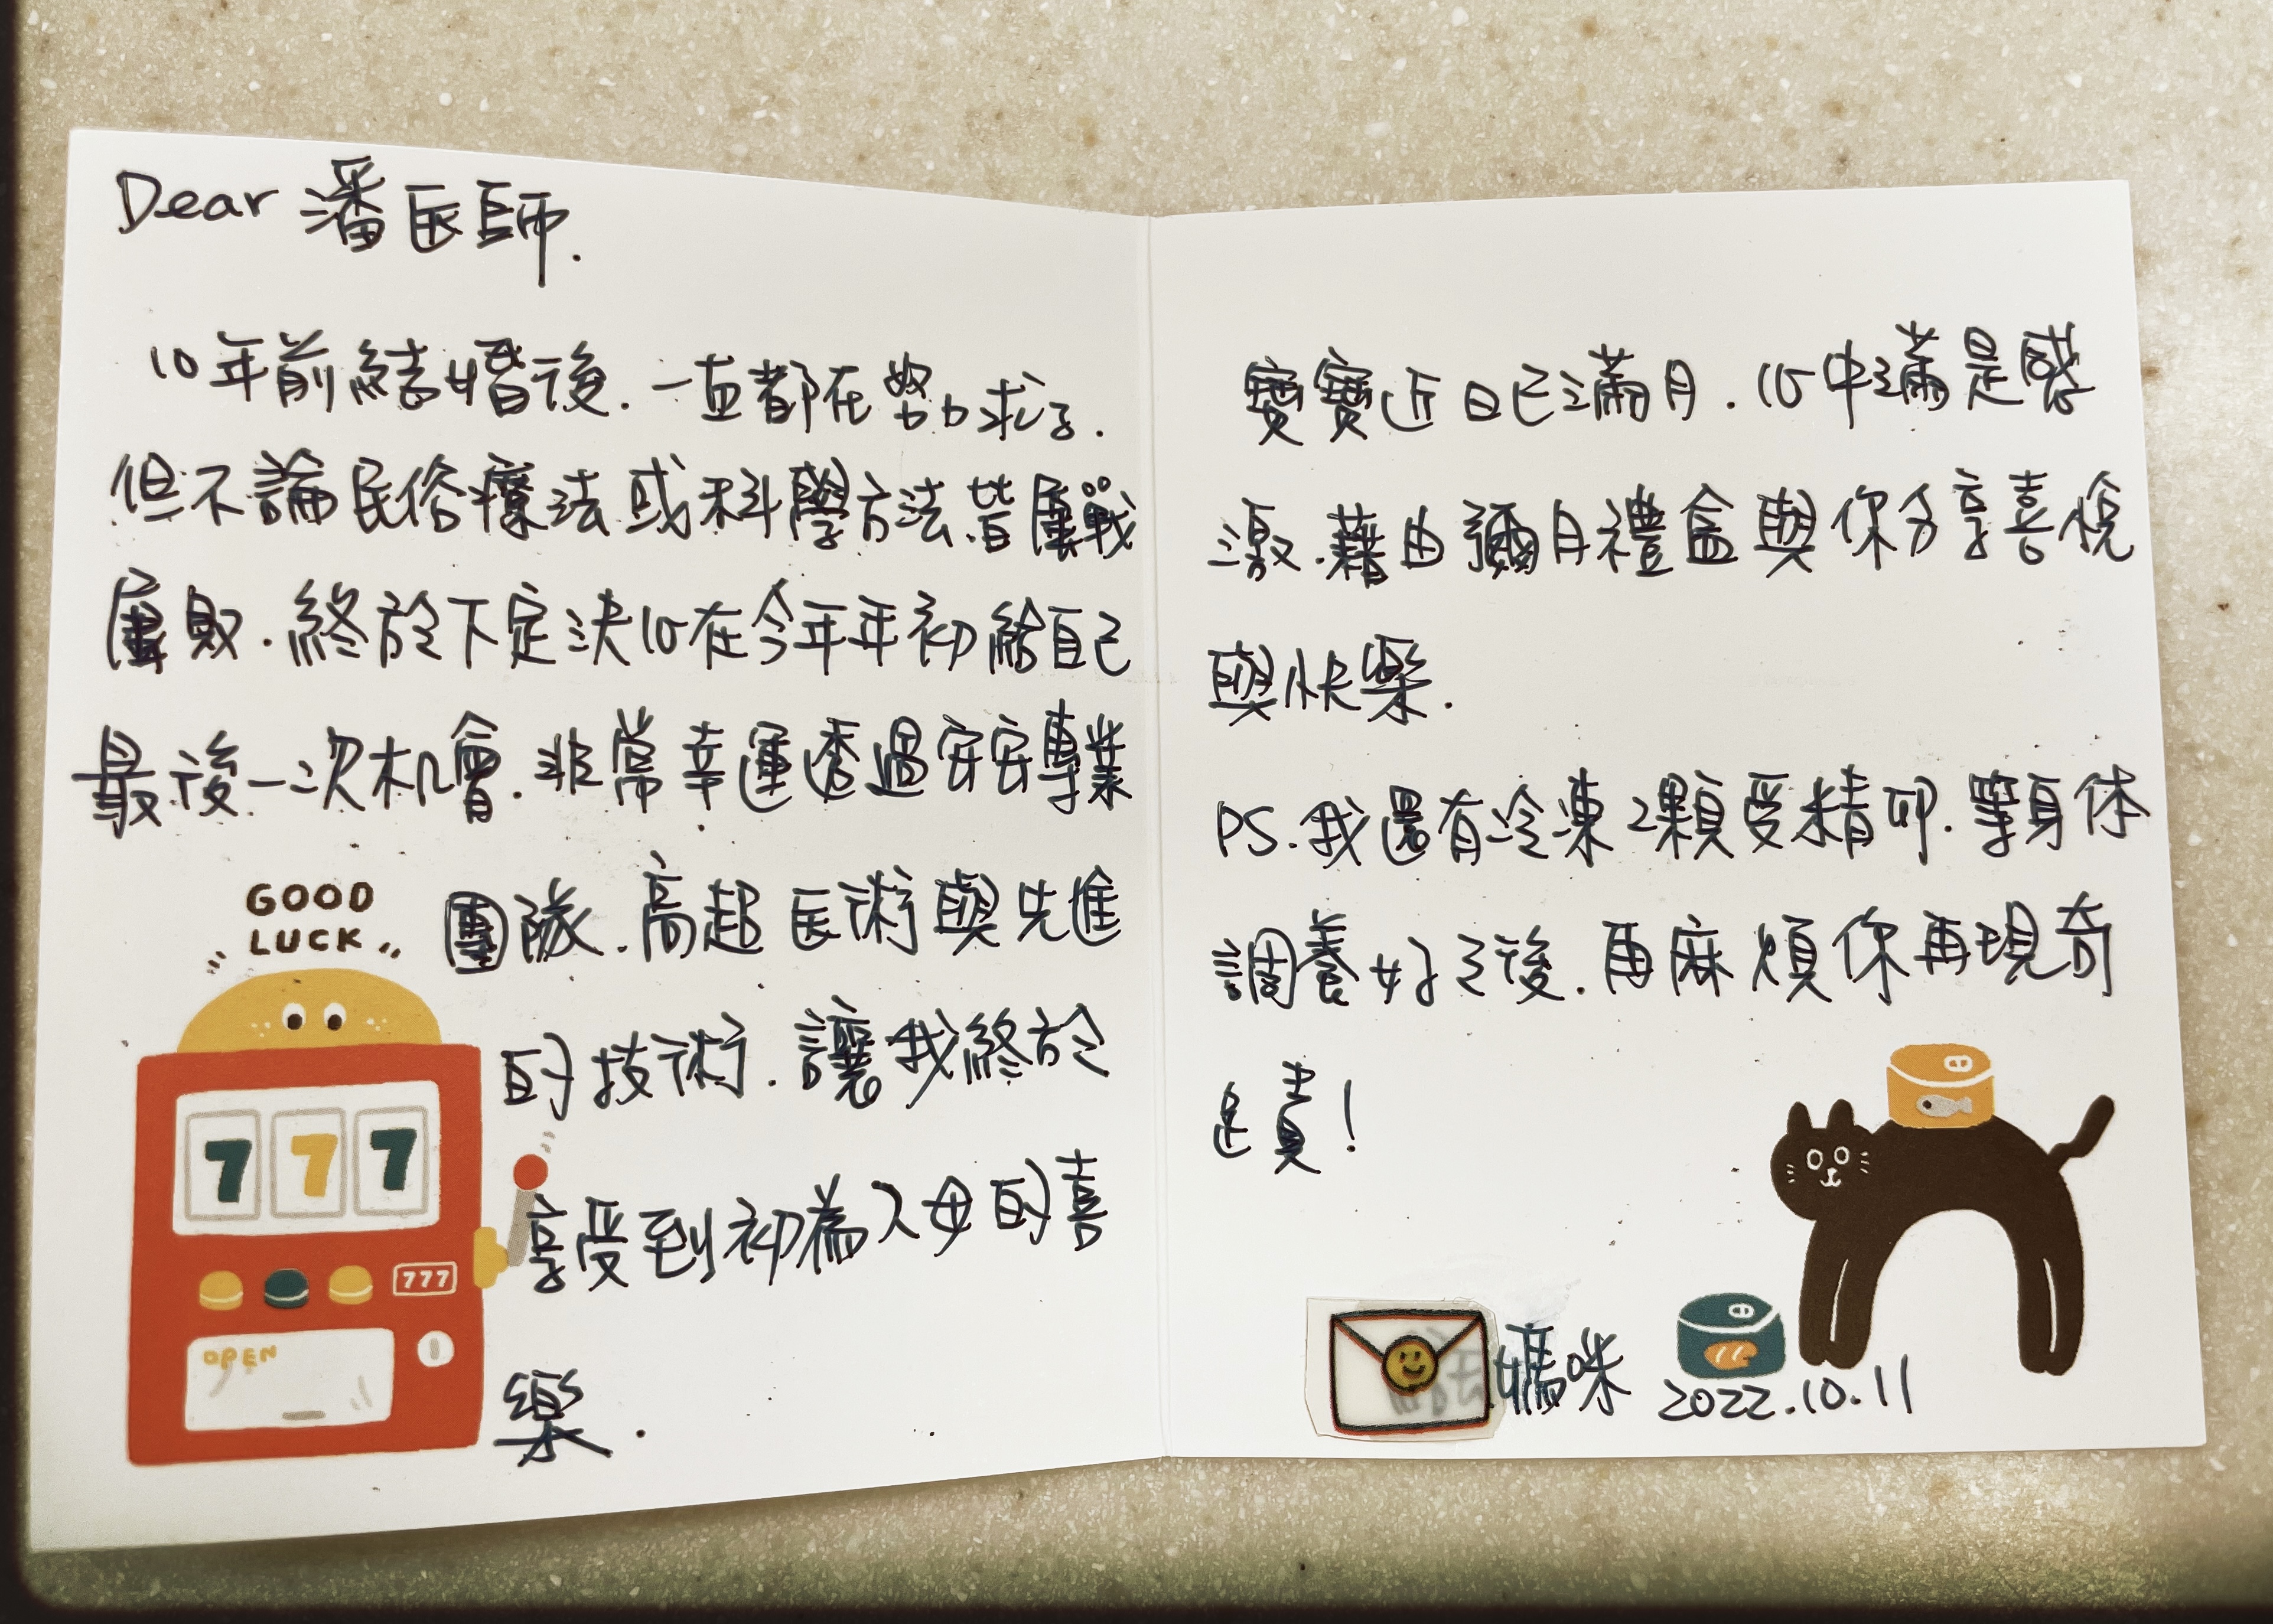 Dear 潘医師.
10年前結婚後. 一直都在努力求子.
但不論民俗療法或科學方法皆屢戰
屢敗. 終於下定決心在今年年初給自己
最後一次机會. 非常幸運透過安安專業
團隊. 高超医術與先進
的技術. 讓我終於
享受到初為人母的喜
樂.
GOOD
LUCK
7 7 7
777
OPEN
寶寶近日已滿月. 心中滿是感
激. 藉由彌月禮盒與你分享喜悅
與快樂.
PS. 我還有冷凍2顆受精卵. 等身体
調養好之後. 再麻煩你再現奇
蹟!
媽咪
2022.10.11